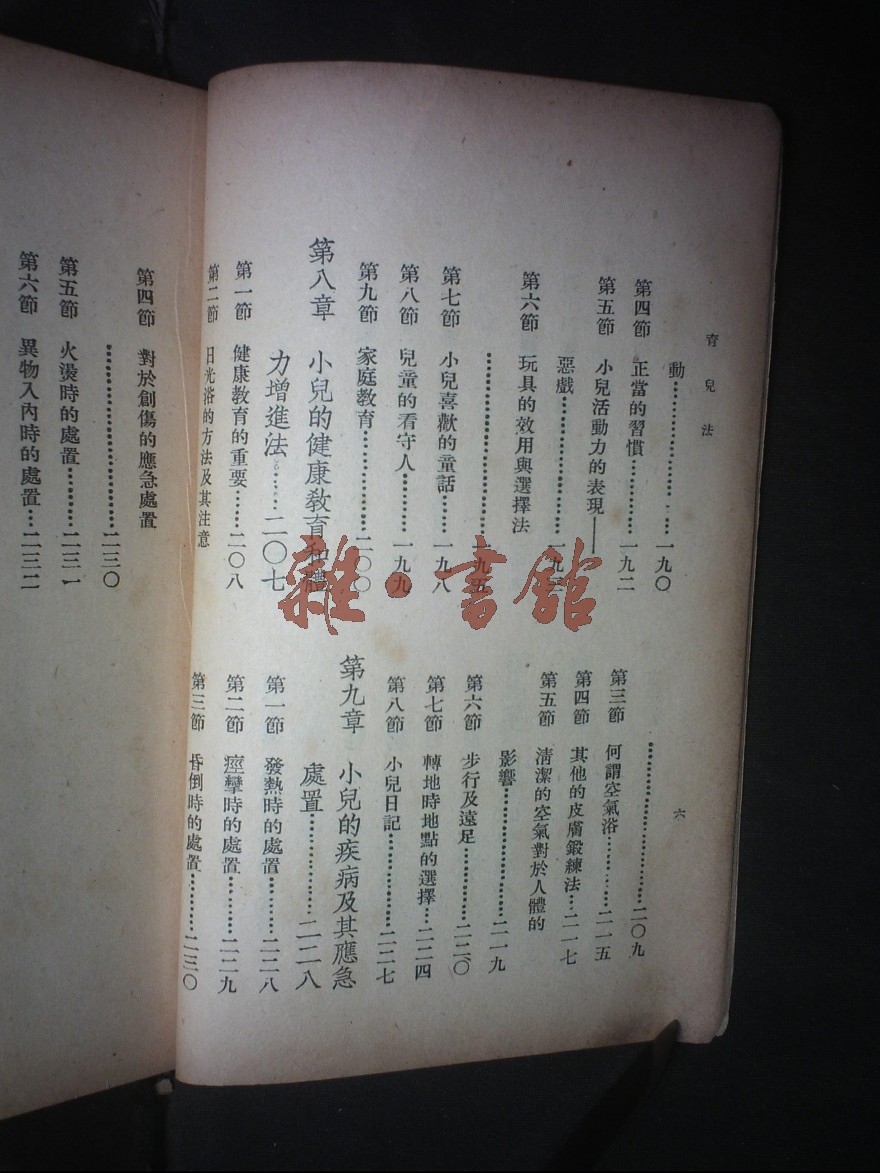 育兒法
六
動……………………一九〇
第四節 正當的習慣…………一九二
第五節 小兒活動力的表現——
惡戲……………………一九
第六節 玩具的效用與選擇法
……………………一九五
第七節 小兒喜歡的童話……一九八
第八節 兒童的看守人………一九九
第九節 家庭教育……………二〇〇
第八章 小兒的健康教育和體
力增進法……二〇七
第一節 健康教育的重要……二〇八
第二節 日光浴的方法及其注意
……………………二〇九
第三節 何謂空氣浴…………二一五
第四節 其他的皮膚鍛練法…二一七
第五節 清潔的空氣對於人體的
影響……………………二一九
第六節 步行及遠足…………二二〇
第七節 轉地時地點的選擇…二二四
第八節 小兒日記……………二二七
第九章 小兒的疾病及其應急
處置……………二二八
第一節 發熱時的處置………二二八
第二節 痙攣時的處置………二二九
第三節 昏倒時的處置………二三〇
第四節 對於創傷的應急處置
……………………二三〇
第五節 火燙時的處置………二三一
第六節 異物入內時的處置…二三二
雜·書館